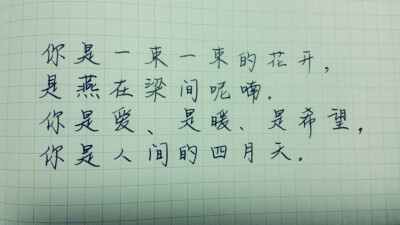 你是一束一束的花开，
是燕在梁间呢喃。
你是爱、是暖、是希望，
你是人间的四月天。